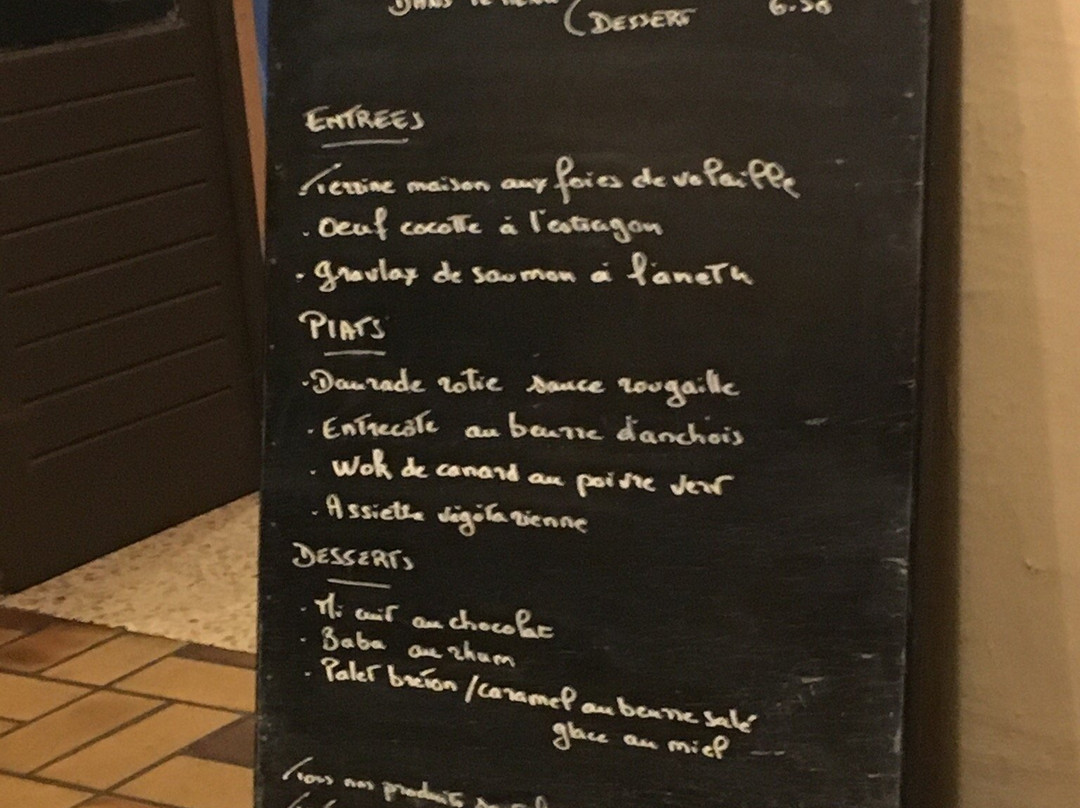 DANS LE MENU (DESSERT 6.50
ENTREES
Terrine maison aux foies de volaille
. Oeuf cocotte à l'estragon
- gravlax de saumon à l'aneth
PLATS
. Daurade rotie sauce rougaille
. Entrecôte au beurre d'anchois
. Wok de canard au poivre vert
. Assiette végétarienne
DESSERTS
. Mi cuit au chocolat
. Baba au rhum
. Palet breton / caramel au beurre salé
glace au miel
Tous nos produits